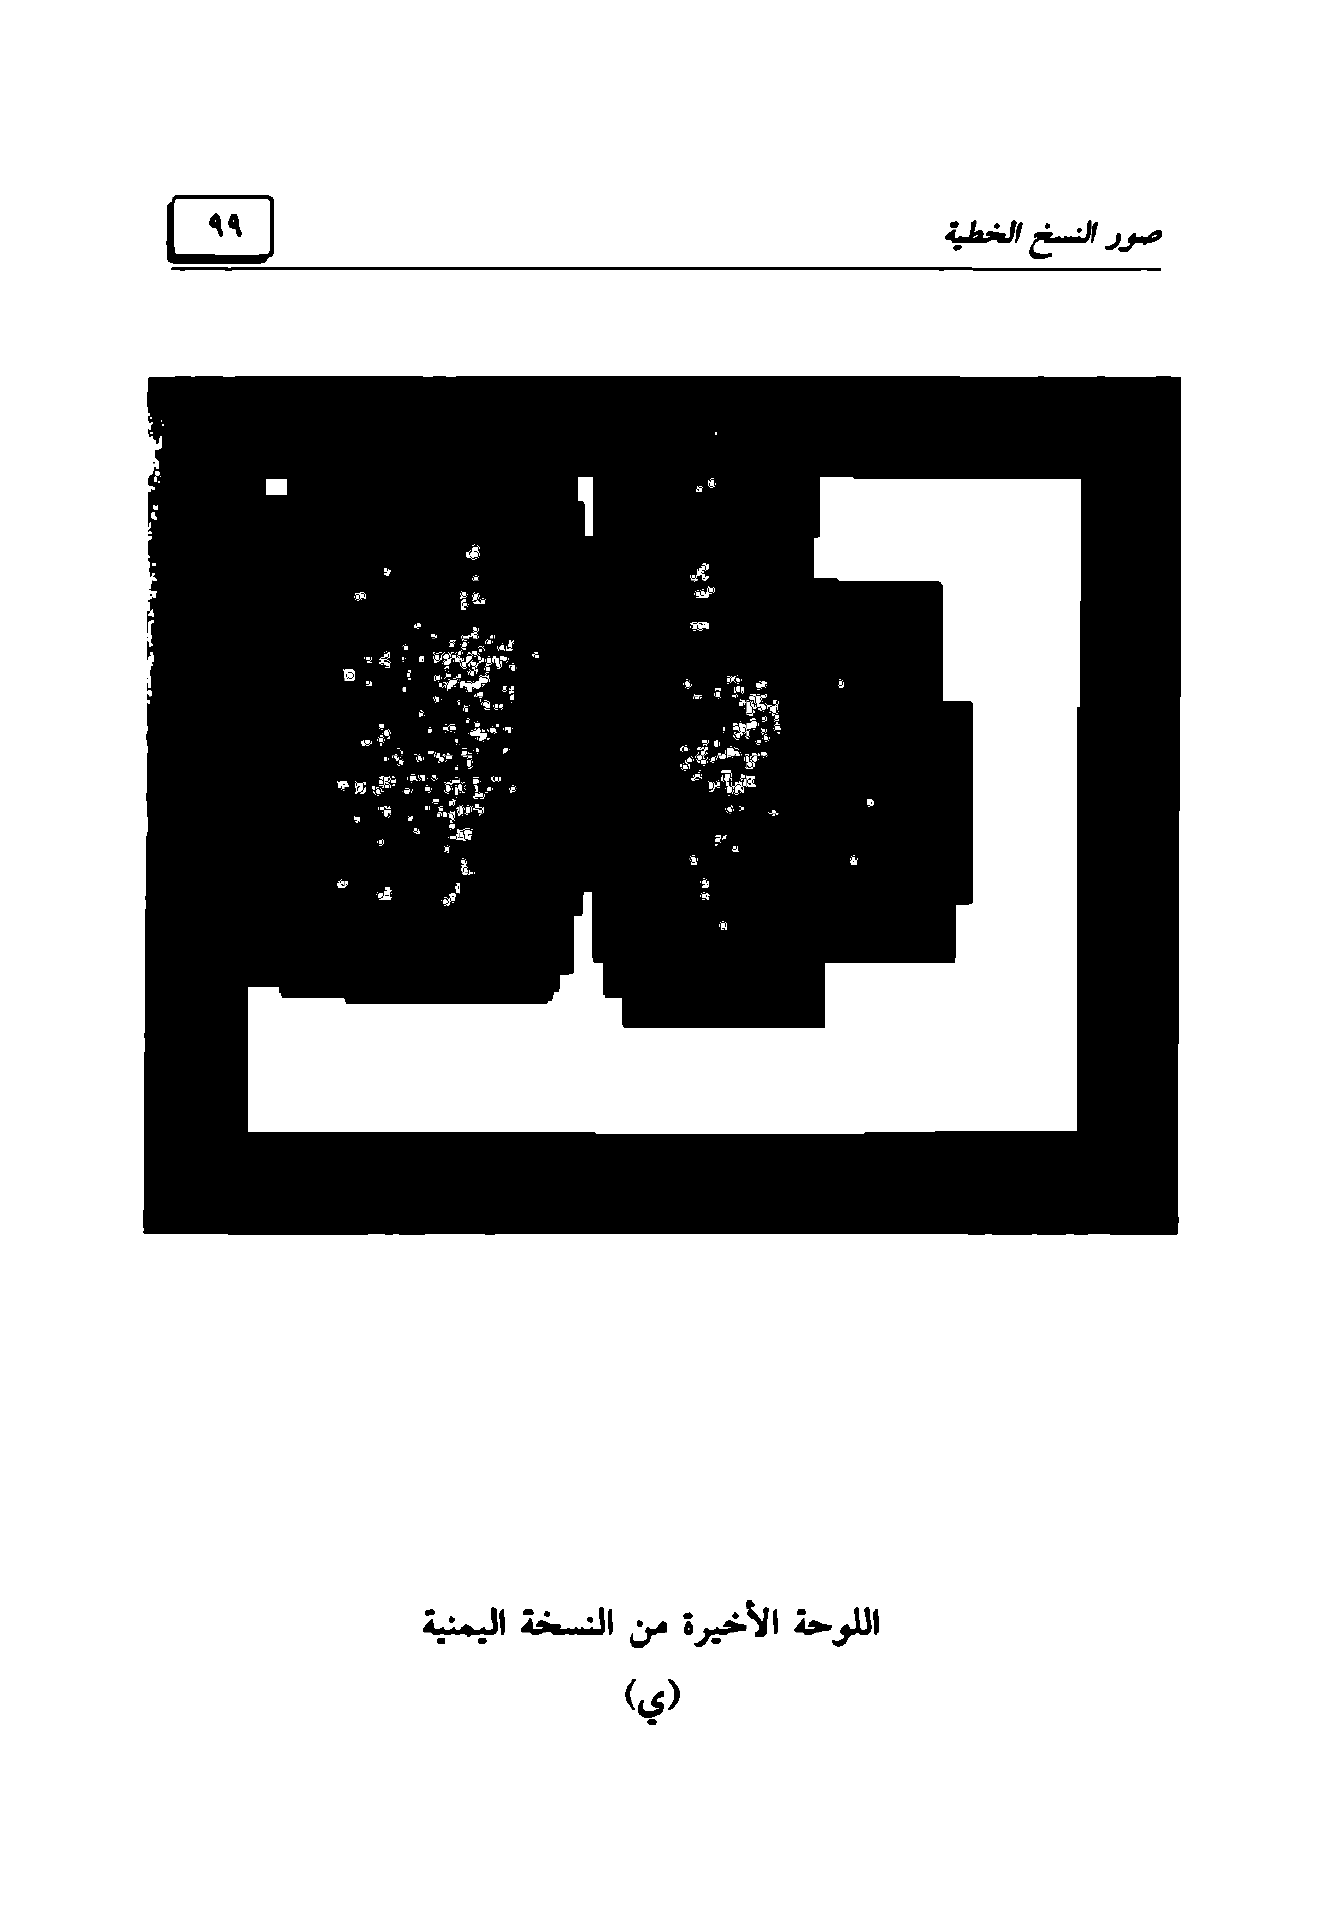 صور النسخ الخطية
٩٩
اللوحة الأخيرة من النسخة اليمنية
(ي)